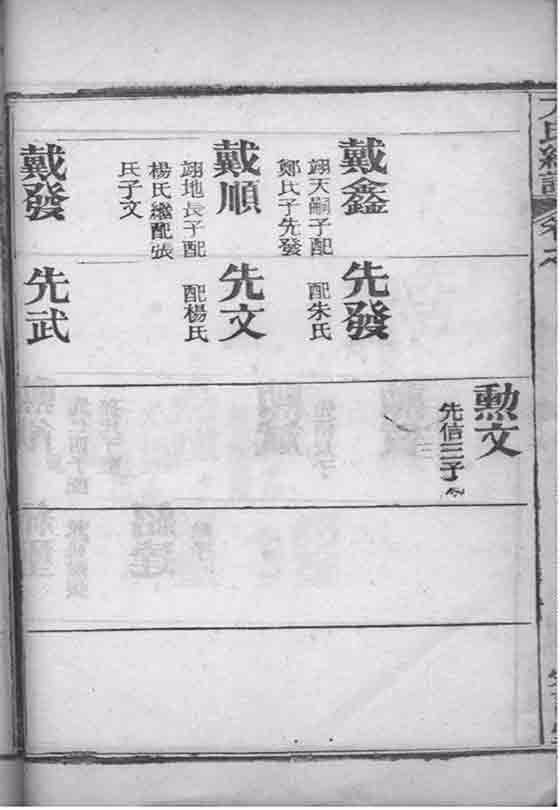 戴鑫
翊天嗣子配
鄭氏子先發
戴順
翊地長子配
楊氏繼配張
氏子文
戴發
先發
配朱氏
先文
配楊氏
先武
勳文
先信三子